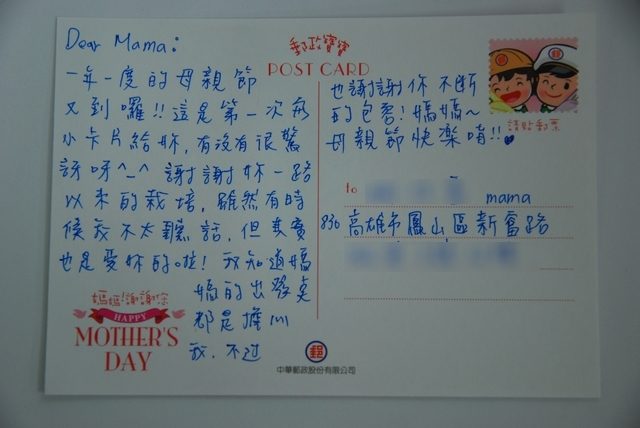 Dear Mama:
一年一度的母親節
又到囉!!這是第一次寫
小卡片給妳,有沒有很驚
訝呀^_^ 謝謝妳一路
以來的栽培,雖然有時
候我不太聽話,但其實
也是愛妳的啦!我知道媽
媽的出發點
都是擔心
我.不過
媽媽!謝謝您
HAPPY
MOTHER'S
DAY
郵政寶寶
POST CARD
也謝謝你不斷
的包容!媽媽~
母親節快樂唷!!
請貼郵票
to mama
830 高雄市鳳山區新富路
郵
中華郵政股份有限公司